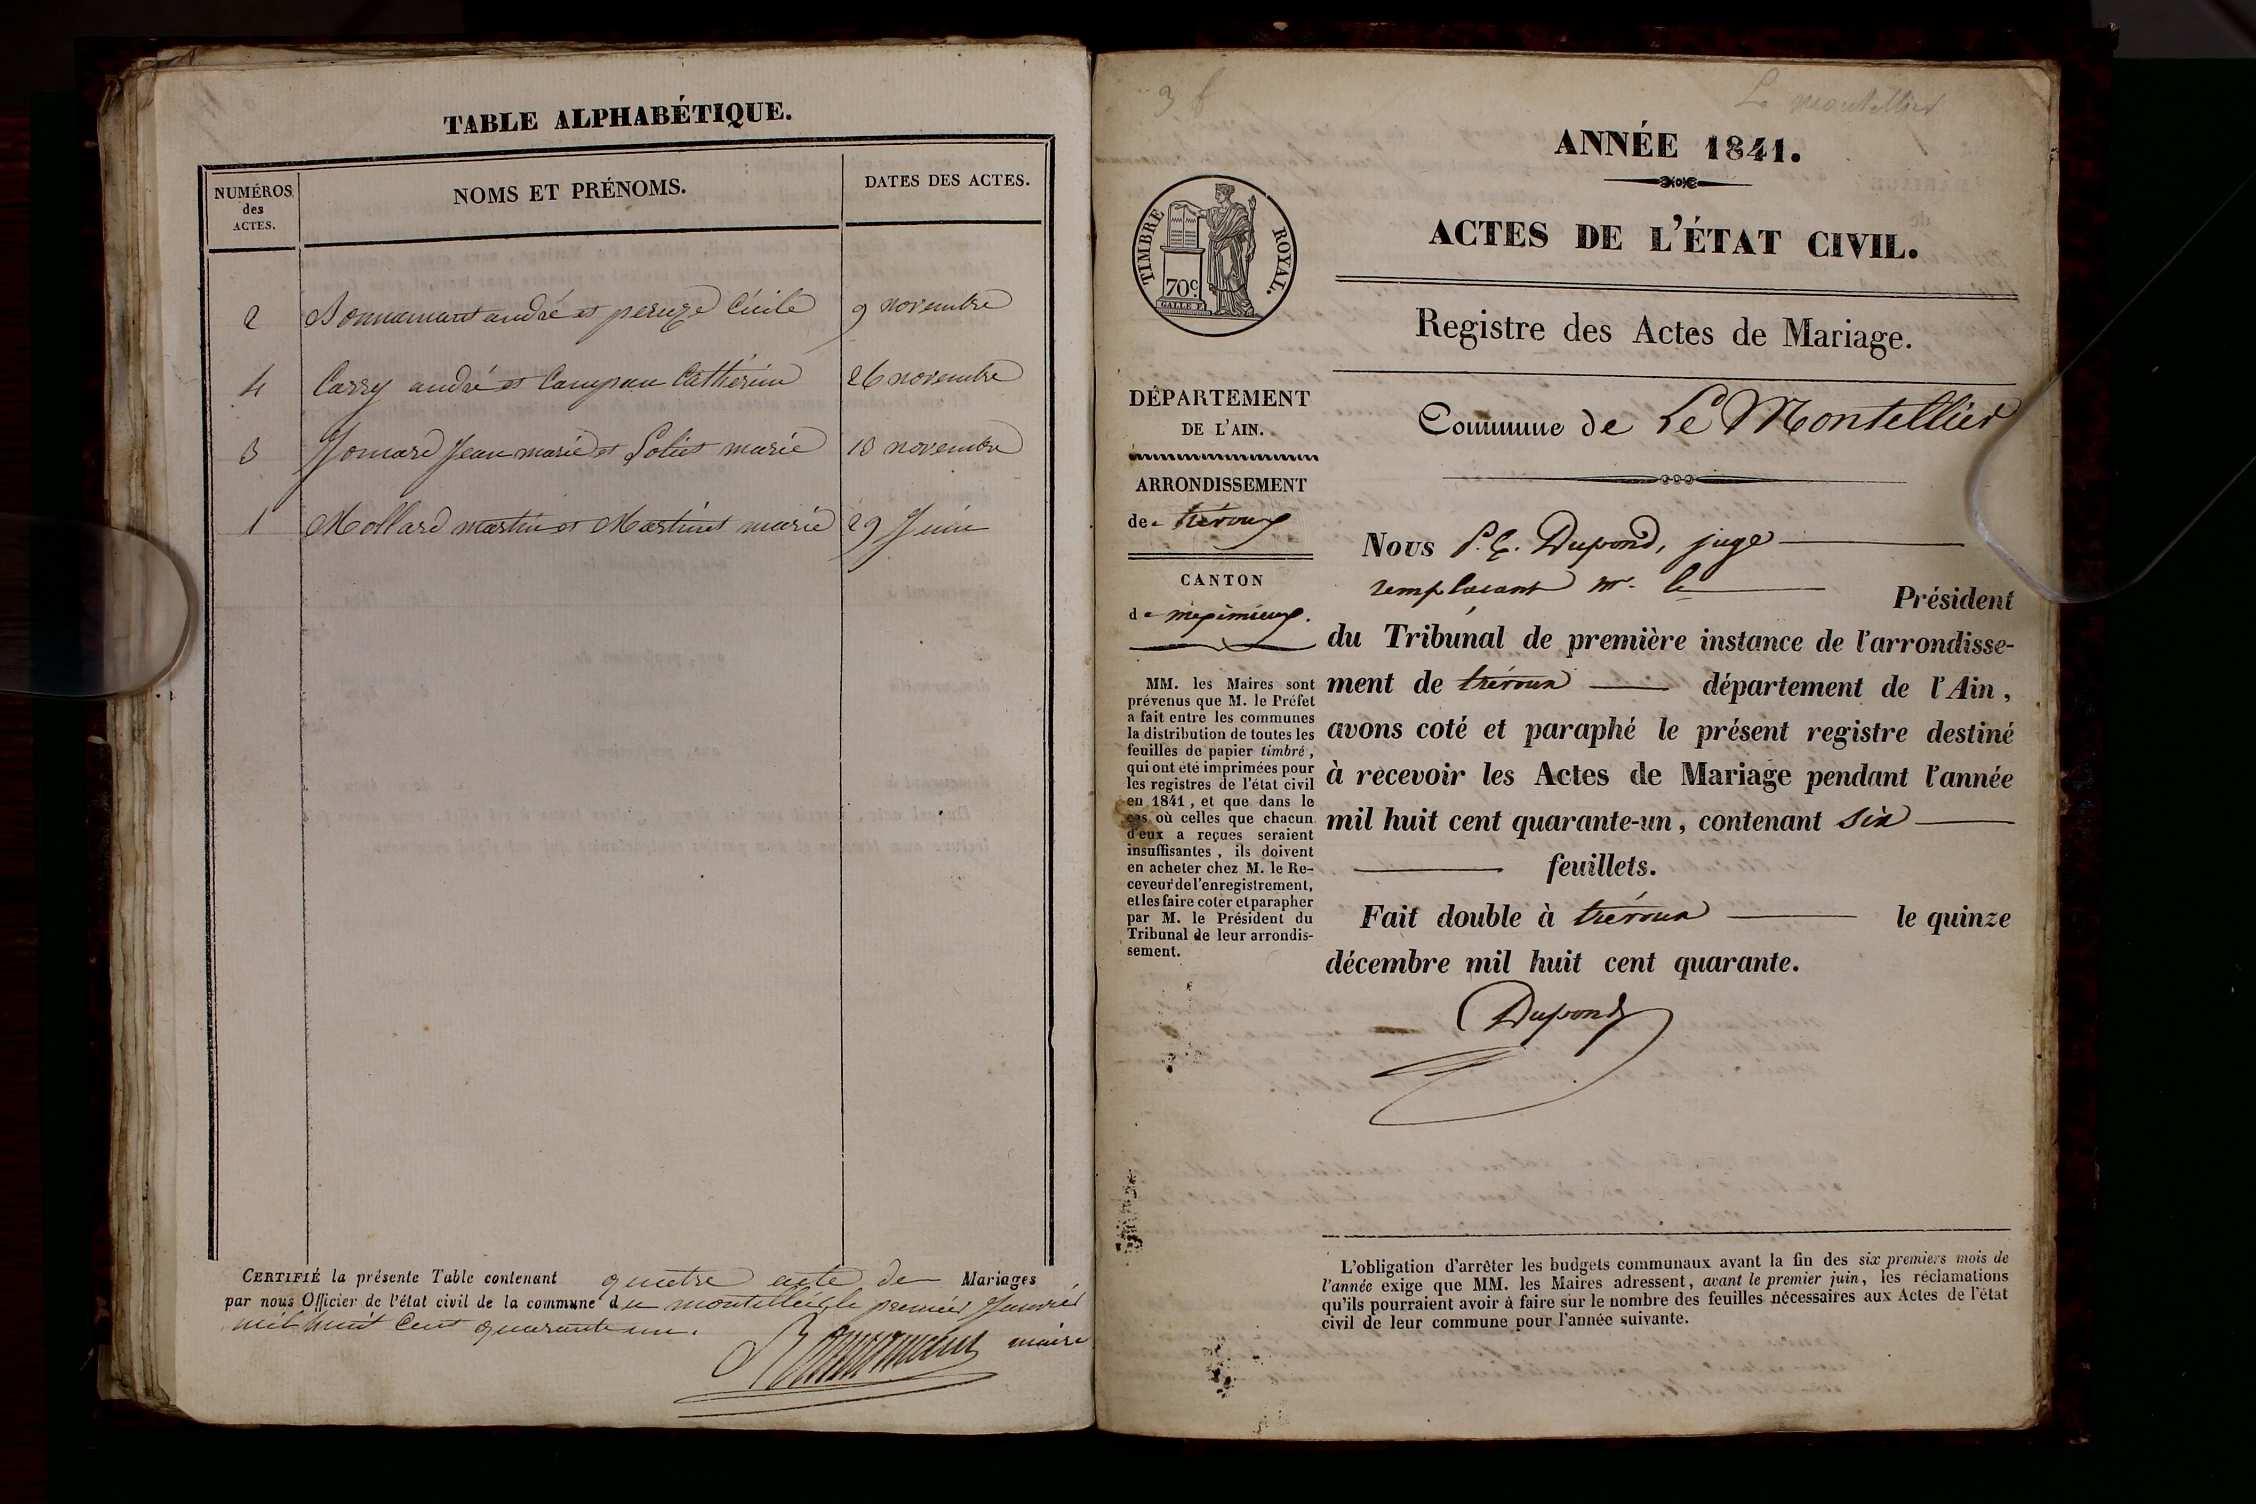 TABLE ALPHABÉTIQUE.
NUMÉROS des ACTES.
NOMS ET PRÉNOMS.
DATES DES ACTES.
2 Bonnamant andré et peruze Cécile 9 novembre
4 Carry andré et Catherine 26 novembre
3 Jomard Jean marie et marie 18 novembre
1 Mollard martin et Martinet marie 29 Juin
CERTIFIÉ la présente Table contenant quatre acte de Mariages
par nous Officier de l'état civil de la commune du montellier le premier Janvier
mil huit Cent quarante un.
maire
3 f
Le montellier
ANNÉE 1841.
ACTES DE L'ÉTAT CIVIL.
Registre des Actes de Mariage.
Commune de Le Montellier
TIMBRE ROYAL.
70 c.
DÉPARTEMENT
DE L'AIN.
ARRONDISSEMENT
de trévoux
CANTON
de meximieux.
MM. les Maires sont
prévenus que M. le Préfet
a fait entre les communes
la distribution de toutes les
feuilles de papier timbré,
qui ont été imprimées pour
les registres de l'état civil
en 1841, et que dans le
cas où celles que chacun
d'eux a reçues seraient
insuffisantes, ils doivent
en acheter chez M. le Re-
ceveur de l'enregistrement,
et les faire coter et parapher
par M. le Président du
Tribunal de leur arrondis-
sement.
Nous Dupond, juge
remplacant mr. le Président
du Tribunal de première instance de l'arrondisse-
ment de trévoux département de l'Ain,
avons coté et paraphé le présent registre destiné
à recevoir les Actes de Mariage pendant l'année
mil huit cent quarante-un, contenant six
feuillets.
Fait double à trévoux le quinze
décembre mil huit cent quarante.
Dupond
L'obligation d'arrêter les budgets communaux avant la fin des six premiers mois de
l'année exige que MM. les Maires adressent, avant le premier juin, les réclamations
qu'ils pourraient avoir à faire sur le nombre des feuilles nécessaires aux Actes de l'état
civil de leur commune pour l'année suivante.